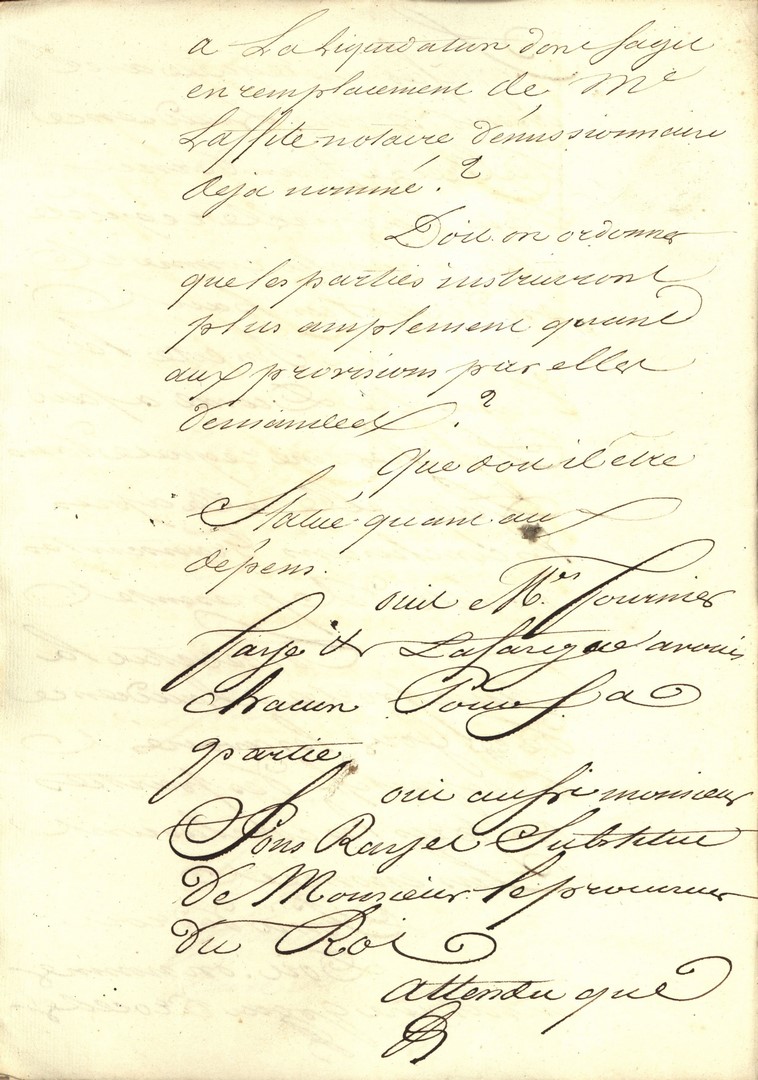 a La liquidation dont sagit
en remplacement de Me
Laffite notaire démissionnaire
deja nommé. ?
Doit on ordonner
que les parties instruiront
plus amplement quant
aux provisions par elles
demandées. ?
Que doit il être
Statué quant aux
dépens.
ouit Mes. Fournier
Farje et Lafargue avoués
chacun Pour Sa
partie
oui aussi monsieur
Pons Rayet Substitut
De Monsieur le procureur
Du Roi
attendu que